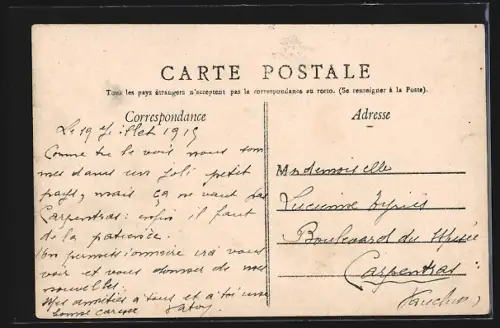 CARTE POSTALE
Tous les pays étrangers n'acceptent pas la correspondance au recto. (Se renseigner à la Poste).
Correspondance
Le 19 Juillet 1915
Comme tu le vois nous som
mes dans un joli petit
pays, mais ça ne vaut pas
Carpentras: enfin il faut
de la patience.
Un permissionnaire ira vous
voir et vous donner de mes
nouvelles.
Mes amitiés à tous et à toi une
bonne caresse
Adresse
Mademoiselle
Lucienne
Boulevard du Musée
Carpentras
Vaucluse